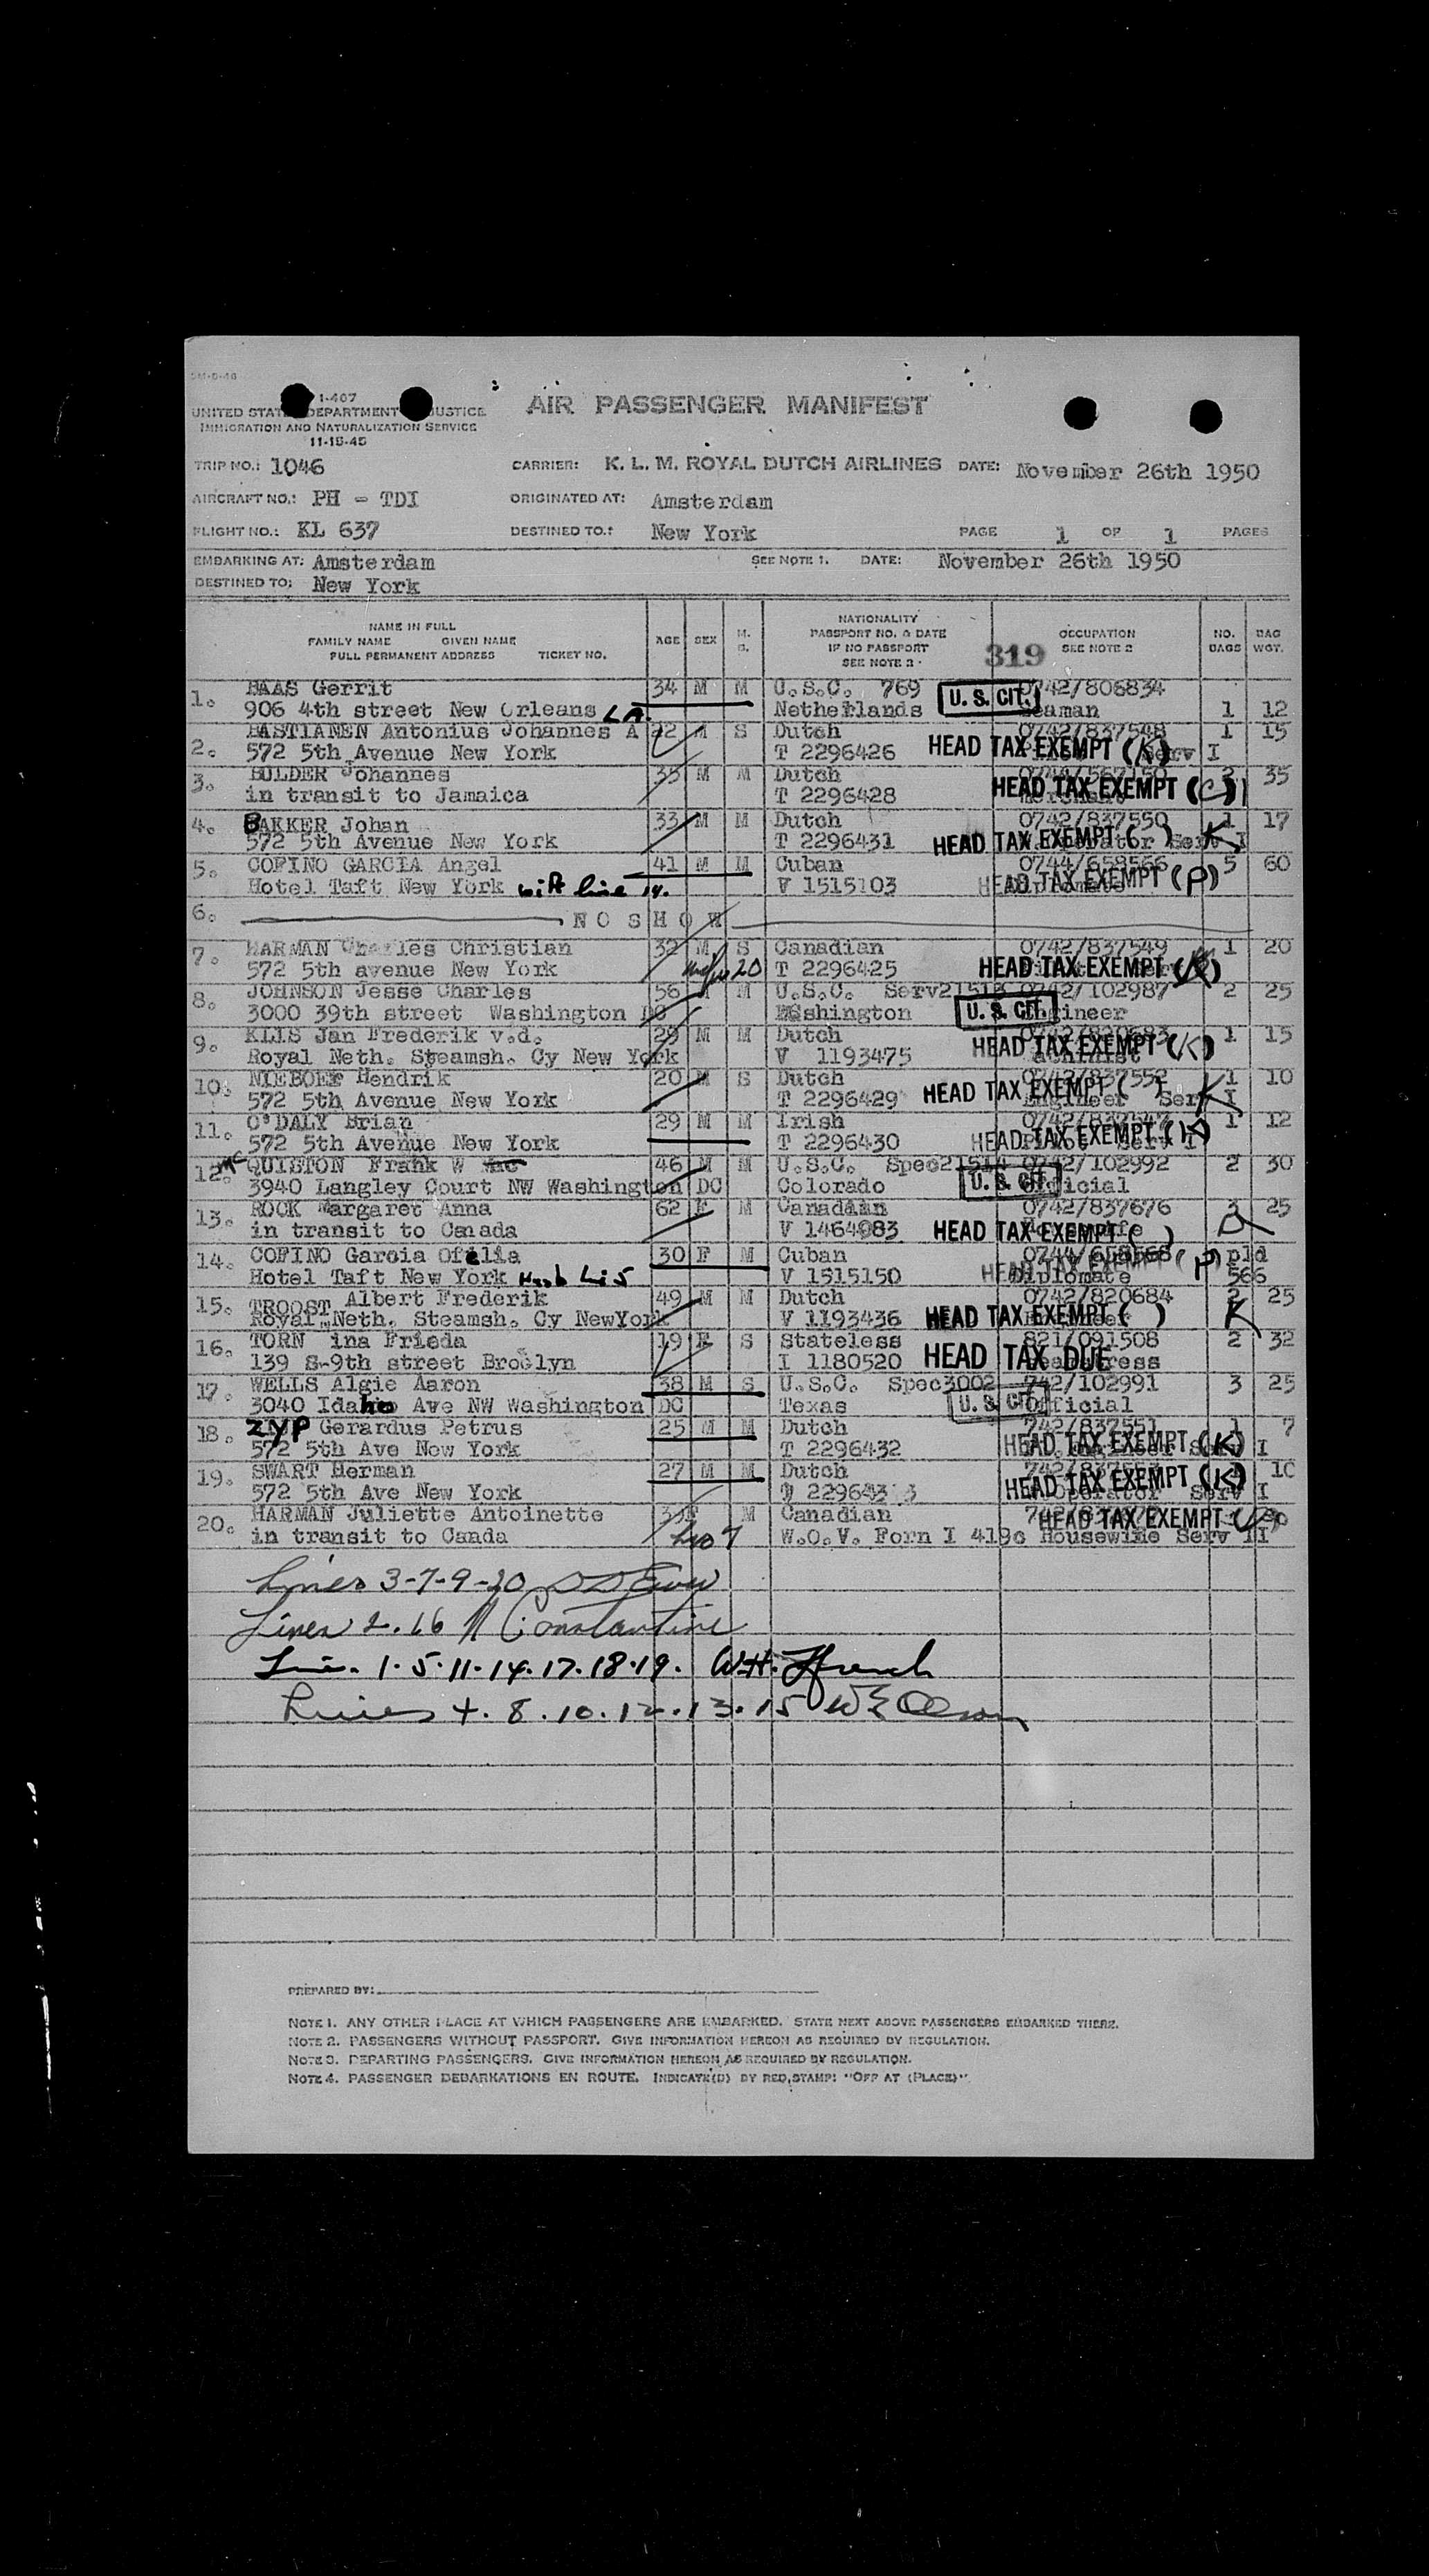 1-407
UNITED STATES DEPARTMENT JUSTICE
IMMIGRATION AND NATURALIZATION SERVICE
11-15-45
AIR PASSENGER MANIFEST
TRIP NO.: 1046 CARRIER: K. L. M. ROYAL DUTCH AIRLINES DATE: November 26th 1950
AIRCRAFT NO.: PH - TDI ORIGINATED AT: Amsterdam
FLIGHT NO.: KL 637 DESTINED TO.: New York PAGE 1 OF 1 PAGES
EMBARKING AT: Amsterdam SEE NOTE 1. DATE: November 26th 1950
DESTINED TO: New York
NAME IN FULL
FAMILY NAME GIVEN NAME
FULL PERMANENT ADDRESS TICKET NO.
AGE SEX M. S.
NATIONALITY
PASSPORT NO. & DATE
IF NO PASSPORT
SEE NOTE 2
319
OCCUPATION
SEE NOTE 2
NO. BAGS
BAG WGT.
1. BAAS Gerrit 34 M M U.S.C. 769 U. S. CIT. 0742/806834
906 4th street New Orleans LA. Netherlands Seaman 1 12
2. BASTIANEN Antonius Johannes A 22 M S Dutch 0742/837548 1 15
572 5th Avenue New York T 2296426 HEAD TAX EXEMPT (K) Serv I
3. BULDER Johannes 35 M M Dutch 35
in transit to Jamaica T 2296428 HEAD TAX EXEMPT (C)
4. BAKKER Johan 33 M M Dutch 0742/837550 1 17
572 5th Avenue New York T 2296431 HEAD TAX EXEMPT ( ) K Serv I
5. COFINO GARCIA Angel 41 M M Cuban 0744/658566 5 60
Hotel Taft New York with line 14. V 1515103 HEAD TAX EXEMPT (P)
6. NO SHOW
7. HARMAN Charles Christian 32 M S Canadian 0742/837549 1 20
572 5th avenue New York 20 T 2296425 HEAD TAX EXEMPT (K)
8. JOHNSON Jesse Charles 56 M M U.S.C. Serv21513 0742/102987 2 25
3000 39th street Washington DC Washington U. S. CIT. Engineer
9. KLIS Jan Frederik v.d. 29 M M Dutch 0742/820683 1 15
Royal Neth. Steamsh. Cy New York V 1193475 HEAD TAX EXEMPT (K)
10. NIEBOER Hendrik 20 M S Dutch 0742/837552 1 10
572 5th Avenue New York T 2296429 HEAD TAX EXEMPT ( ) K Engineer Serv I
11. O'DALY Brian 29 M M Irish 0742/837547 1 12
572 5th Avenue New York T 2296430 HEAD TAX EXEMPT (K)
12. Mc QUISTON Frank W Mc 46 M M U.S.C. Spec21514 0742/102992 2 30
3940 Langley Court NW Washington DC Colorado U. S. CIT. Official
13. ROCK Margaret Anna 62 F M Canadian 0742/837676 3 25
in transit to Canada V 1464983 HEAD TAX EXEMPT ( )
14. COFINO Garcia Ofelia 30 F M Cuban 0744/658568 pld
Hotel Taft New York Husb Li 5 V 1515150 HEAD TAX EXEMPT (P) Diplomate 566
15. TROOST Albert Frederik 49 M M Dutch 0742/820684 2 25
Royal Neth. Steamsh. Cy NewYork V 1193436 HEAD TAX EXEMPT ( ) K
16. TORN ina Frieda 19 F S Stateless 821/091508 2 32
139 S-9th street Broolyn I 1180520 HEAD TAX DUE
17. WELLS Algie Aaron 38 M S U.S.C. Spec3002 742/102991 3 25
3040 Idaho Ave NW Washington DC Texas U. S. CIT. Official
18. ZYP Gerardus Petrus 25 M M Dutch 742/837551 1 7
572 5th Ave New York T 2296432 HEAD TAX EXEMPT (K) I
19. SWART Herman 27 M M Dutch 10
572 5th Ave New York HEAD TAX EXEMPT (K) Operator Serv I
20. HARMAN Juliette Antoinette F M Canadian HEAD TAX EXEMPT
in transit to Canda W.O.V. Forn I 419c Housewife Serv II
Lines 3-7-9-20
Lines 2. 16 N Constantine
Line. 1.5.11.14.17.18.19. W.H. Ffrench
Lines 4. 8. 10. 12. 13. 15 W E Olson
PREPARED BY:
NOTE 1. ANY OTHER PLACE AT WHICH PASSENGERS ARE EMBARKED. STATE NEXT ABOVE PASSENGERS EMBARKED THERE.
NOTE 2. PASSENGERS WITHOUT PASSPORT. GIVE INFORMATION HEREON AS REQUIRED BY REGULATION.
NOTE 3. DEPARTING PASSENGERS. GIVE INFORMATION HEREON AS REQUIRED BY REGULATION.
NOTE 4. PASSENGER DEBARKATIONS EN ROUTE. INDICATE(D) BY RED STAMP: "OFF AT (PLACE)".